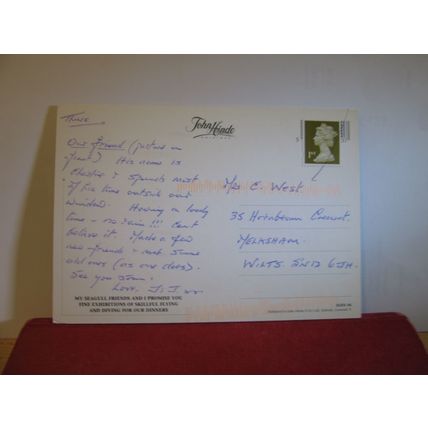 Thurs.
John Hinde
ORIGINAL
Our Friend (picture on
front) His name is
Chester & spends most
of his time outside our
window. Having a lovely
time - no rain !!! Can't
believe it. Made a few
new friends - met some
old ones (as one does).
See you soon.
Love, J. J xx
MY SEAGULL FRIENDS AND I PROMISE YOU
FINE EXHIBITIONS OF SKILLFUL FLYING
AND DIVING FOR OUR DINNERS
1ST
Mrs C. West.
35 Hornbeam Crescent,
MELKSHAM.
WILTS. SN12 6JH.